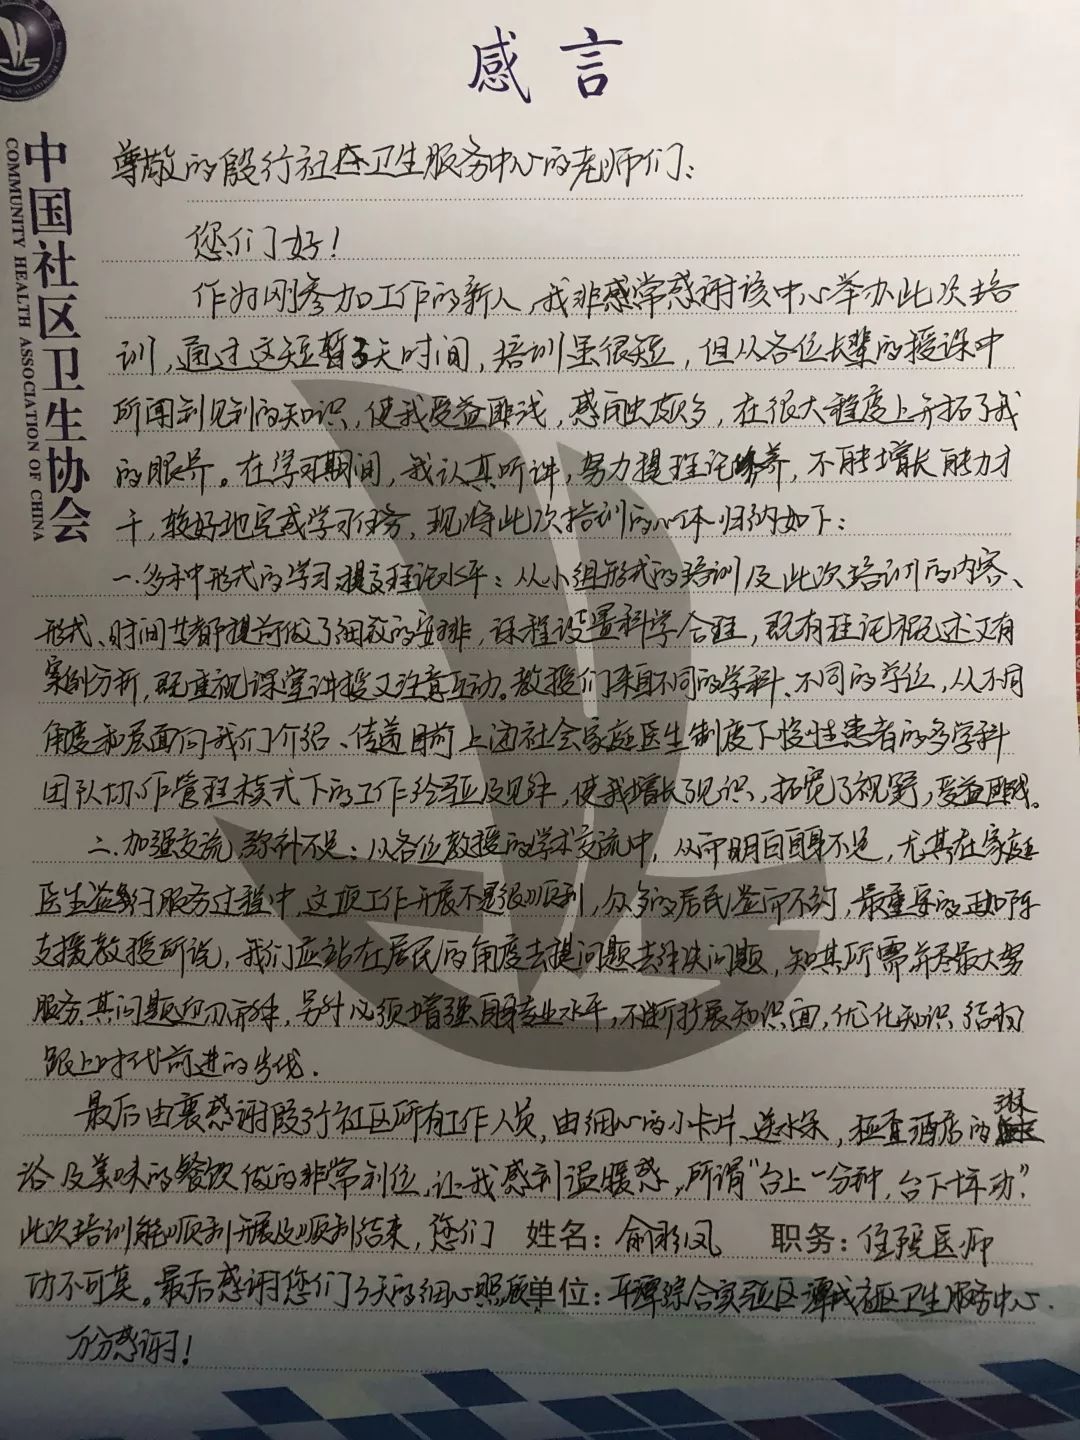 感言
中国社区卫生协会
COMMUNITY HEALTH ASSOCIATION OF CHINA
尊敬的殷行社区卫生服务中心的老师们:
您们好!
作为刚参加工作的新人,我非常感谢该中心举办此次培
训,通过这短暂3天时间,培训虽很短,但从各位长辈的授课中
所闻到见到的知识,使我受益匪浅,感触颇多,在很大程度上开拓了我
的眼界。在学习期间,我认真听讲,努力提理论培养,不能增长能力才
干,较好地完成学习任务,现将此次培训的心体归纳如下:
一.多种形式的学习,提高理论水平:从小组形式的培训及此次培训的内容、
形式、时间安都提前做了细致的安排,课程设置科学合理,既有理论概述又有
案例分析,既重视课堂讲授又注意互动。教授们来自不同的学科、不同的单位,从不同
角度和层面向我们介绍、传递目前上海社会家庭医生制度下慢性患者的多学科
团队协作管理模式下的工作经验及见解,使我增长了见识,拓宽了视野,受益匪浅。
二.加强交流,弥补不足:从各位教授的学术交流中,从而明白自身不足,尤其在家庭
医生签约服务过程中,这项工作开展不是很顺利,众多的居民签而不约,最重要的正如陈
支援教授所说,我们应站在居民的角度去提问题去解决问题,知其所需并尽最大努
服务,其问题迎刃而解,另外必须增强自身专业水平,不断扩展知识面,优化知识结构
跟上时代前进的步伐.
最后由衷感谢殷行社区所有工作人员,由细心的小卡片、送水果,检查酒店的淋
浴及美味的餐饮做的非常到位,让我感到温暖感,所谓“台上一分钟,台下十年功”.
此次培训能顺利开展及顺利结束,您们 姓名:俞彩凤 职务:住院医师
功不可莫。最后感谢您们3天的细心照顾 单位:平潭综合实验区潭城社区卫生服务中心.
万分感谢!